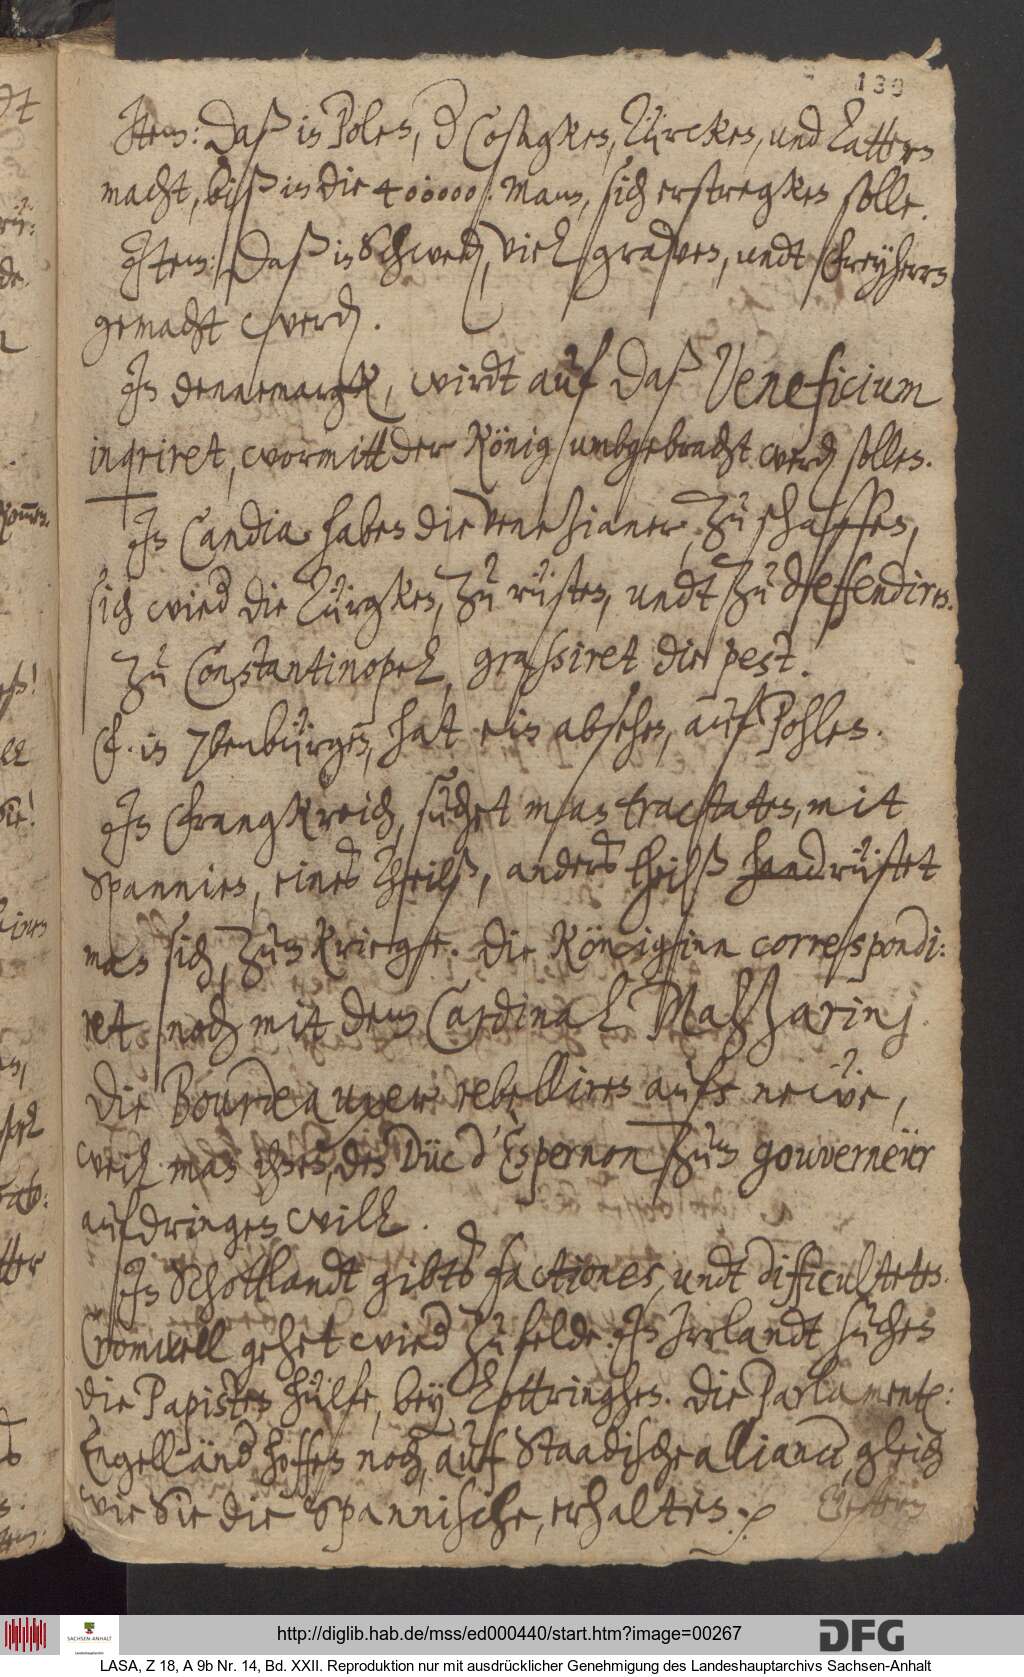 139
Item: Daß in Polen, d Cosagken, Türcken, und Tattern
macht, biß in die 400000: Mann, sich erstregken solle.
Item: Daß in Schweden, viel grafven, undt Freyherrn
gemacht werden.
In Dennemargk, wirdt auf daß Veneficium
inqriret, wormitt der König umbgebracht werden sollen.
In Candia haben die Venezianer, zu schaffen,
sich wied die Türgken, zu rüsten, undt zu deffendiren.
Zu Constantinopel, grassiret die pest.
F. in 7benbürgen, hat ein absehen, auf Pohlen.
In Frangkreich, suchet man tractaten, mit
Spannien, eines Theilß, anders theilß rüstet
man sich, zum Kriege. Die Königinn correspondi:
ret noch mit dem Cardinal Mazzarinj.
Die Bourdeauxer rebelliren aufs neüe,
weil man ihnen, den Düc d'Espernon zum gouverneür
aufdringen will.
In Schottlandt gibts factiones, undt difficulteten.
Cromwell gehet wied zu felde. In Irrlandt suchen
die Papisten hülfe, bey Lottringhen. Die Parlament:
Engelländ hoffen noch, auf Staadische alliancen, gleich
wie Sie die Spannische, erhalten.
Gestern
http://diglib.hab.de/mss/ed000440/start.htm?image=00267
SACHSEN-ANHALT
Landeshauptarchiv
DFG
LASA, Z 18, A 9b Nr. 14, Bd. XXII. Reproduktion nur mit ausdrücklicher Genehmigung des Landeshauptarchivs Sachsen-Anhalt